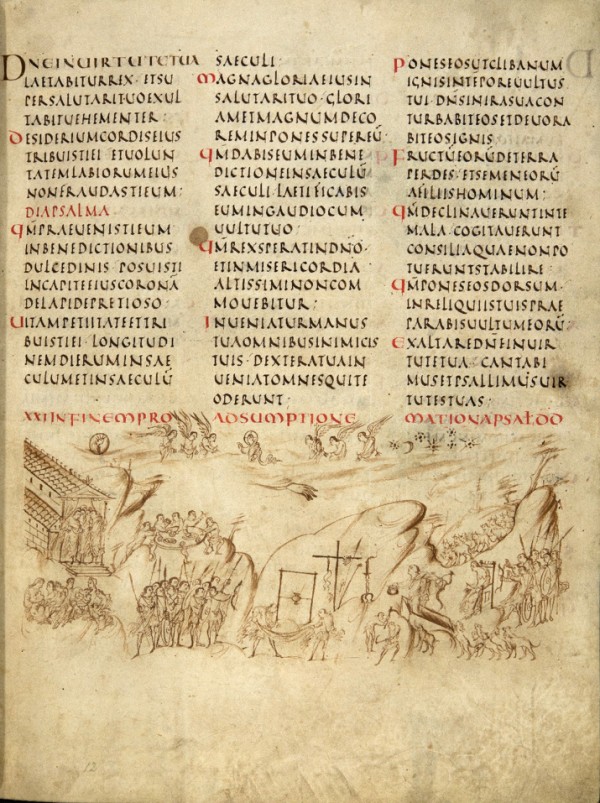 DNEINUIRTUTETUA
LAETABITURREX · ETSU
PERSALUTARITUOEXUL
TABITUEHEMENTER ·
DESIDERIUMCORDISEIUS
TRIBUISTIEI · ETUOLUN
TATEMLABIORUMEIUS
NONFRAUDASTIEUM ·
DIAPSALMA
QMPRAEUENISTIEUM
INBENEDICTIONIBUS
DULCEDINIS · POSUISTI
INCAPITEEIUSCORONĀ
DELAPIDEPRETIOSO ·
UITAMPETIITATEETTRI
BUISTIEI · LONGITUDI
NEMDIERUMINSAE
CULUMETINSAECULŪ
SAECULI ·
MAGNAGLORIAEIUSIN
SALUTARITUO · GLORI
AMETMAGNUMDECO
REMINPONESSUPEREŪ ·
QMDABISEUMINBENE
DICTIONEINSAECULŪ
SAECULI · LAETIFICABIS
EUMINGAUDIOCUM
UULTUTUO ·
QMREXSPERATINDNŌ ·
ETINMISERICORDIA
ALTISSIMINONCOM
MOUEBITUR ·
INUENIATURMANUS
TUAOMNIBUSINIMICIS
TUIS · DEXTERATUAIN
UENIATOMNESQUITE
ODERUNT ·
PONESEOSUTCLIBANUM
IGNISINTEPOREUULTUS
TUI · DNSINIRASUACON
TURBABITEOSETDEUORA
BITEOSIGNIS ·
FRUCTŪEORŪDETERRA
PERDES · ETSEMENEORŪ
AFILIISHOMINUM ·
QMDECLINAUERUNTINTE
MALA · COGITAUERUNT
CONSILIAQUAENONPO
TUERUNTSTABILIRE ·
QMPONESEOSDORSUM ·
INRELIQUIISTUISPRAE
PARABISUULTUMEORŪ ·
EXALTAREDNEINUIR
TUTETUA · CANTABI
MUSETPSALLIMUSUIR
TUTESTUAS ·
XXIINFINEMPRO ADSUMPTIONE MATUTINAPSALDD
12